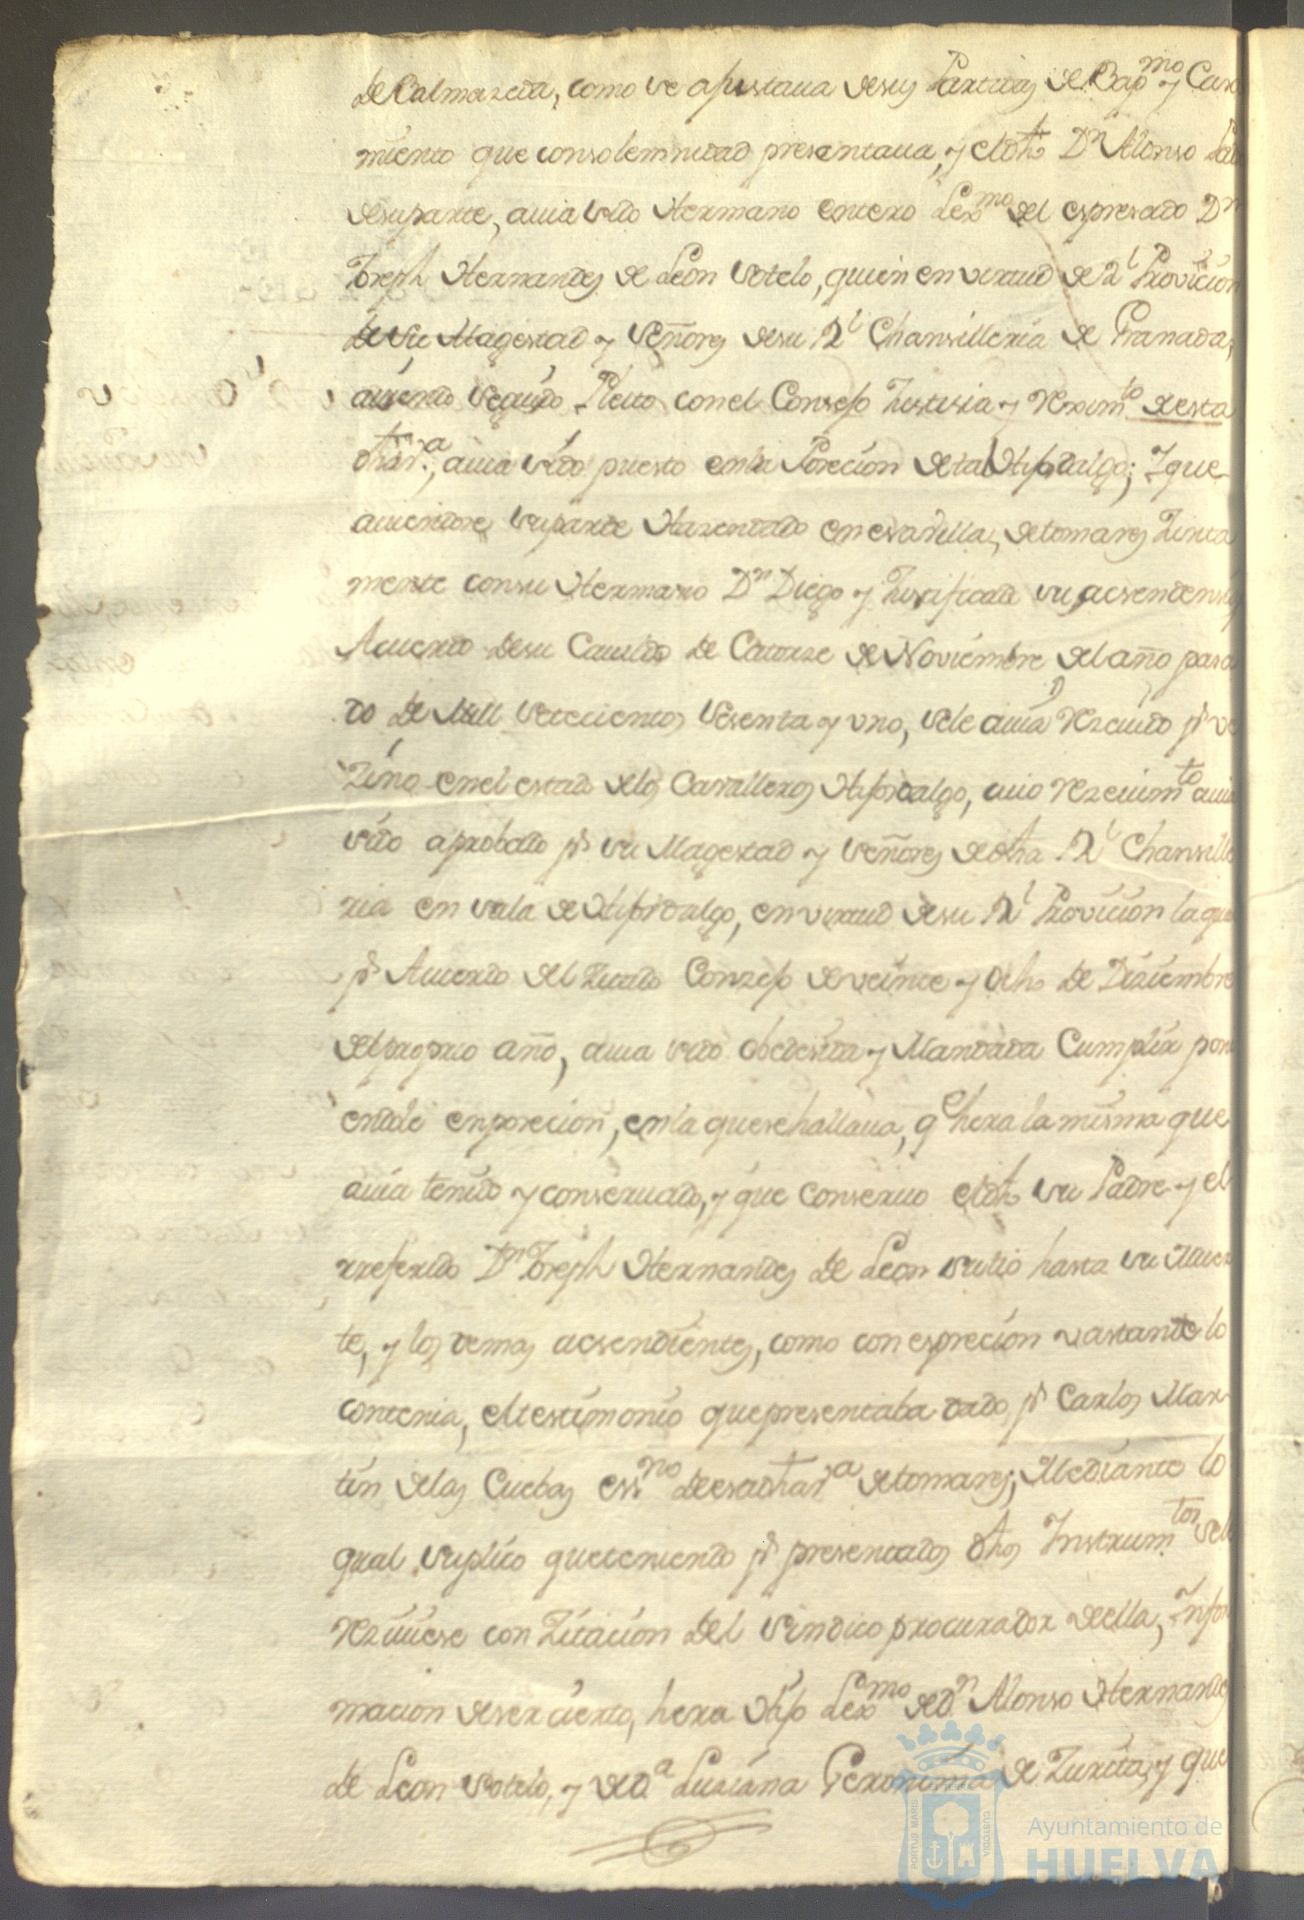 de Calmaseda, como se apustaua desus Partidas de Bapmo y Casa
miento que consolemnidad presentaua, y eldho Dn Alonso Padre
desuparte, auia sido Hermano entero Lexmo del espresado Dn
Joseph Hernandes de Leon Sotelo, quien en virtud de Rl Provicion
de su Magestad y Señores desu Rl Chansilleria de Granada,
auiendo seguido Pleito conel Consejo Justisia y Reximto desta
dhaVa, auia sido puesto enla Posecion detal Hijodalgo; Y que
auiendose suparte Hasendado en esavilla, detomares Junta
mente consu Hermano Dn Diego y Justificada su acsendensia
Acuerdo desu Cauildo de Catorse de Noviembre del año pasa
do de Mill setecientos sesenta y uno, sele auia Reseuido pr ve
zino enel estado delos Cavalleros Hijosdalgo, cuio Reseuimto auia
sido aprobado pr su Magestad y señores dedha Rl Chansille
ria en sala de Hijosdalgo, envirtud desu Rl Provicion la qual
pr Acuerdo del Zitado Consejo deveinte y ocho de Diziembre
delpropio año, auia sido obedesida y Mandada Cumplir poni
endole enposecion, enla quesehallaua, qe hera la misma que
auia tenido y conseruado, y que conseruo eldho su Padre y el
rreferido Dn Joseph Hernandes de Leon sutio hasta su Muer
te, y los demas acsendientes, como con esprecion vastante lo
contenia, eltestimonio quepresentaba dado pr Carlos Mar
tin delas Cuebas essno deesadhaVa detomares; Mediante lo
qual suplico queteniendo pr presentados dhos Instrumtos sele
Resiuiese con Zitacion del sindico procurador deella, Infor
macion deser cierto, hera Hijo Lexmo de Dn Alonso Hernandes
de Leon Sotelo, y de Da Lusiana Geronima de Zurita, y que
PORTUS MARIS CUSTODIA
Ayuntamiento de
HUELVA